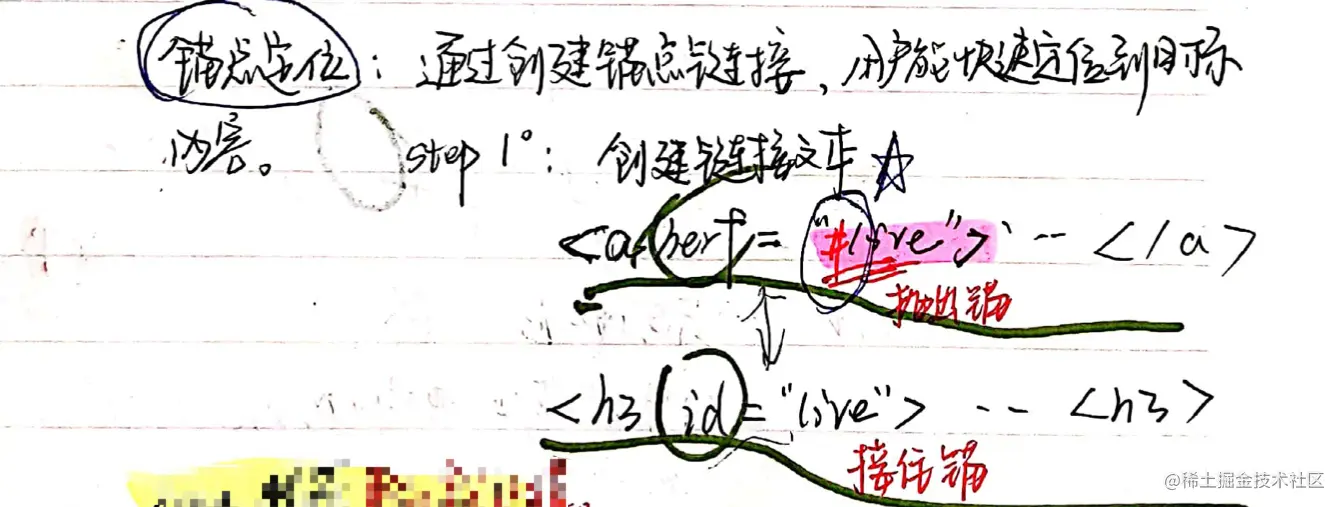 锚点定位：通过创建锚点链接，用户能快速定位到目标
内容。 step 1°：创建链接文本 ☆
<a herf = "#live"> -- </a>
抛出锚
<h3 id="live"> -- <h3>
接住锚
@稀土掘金技术社区